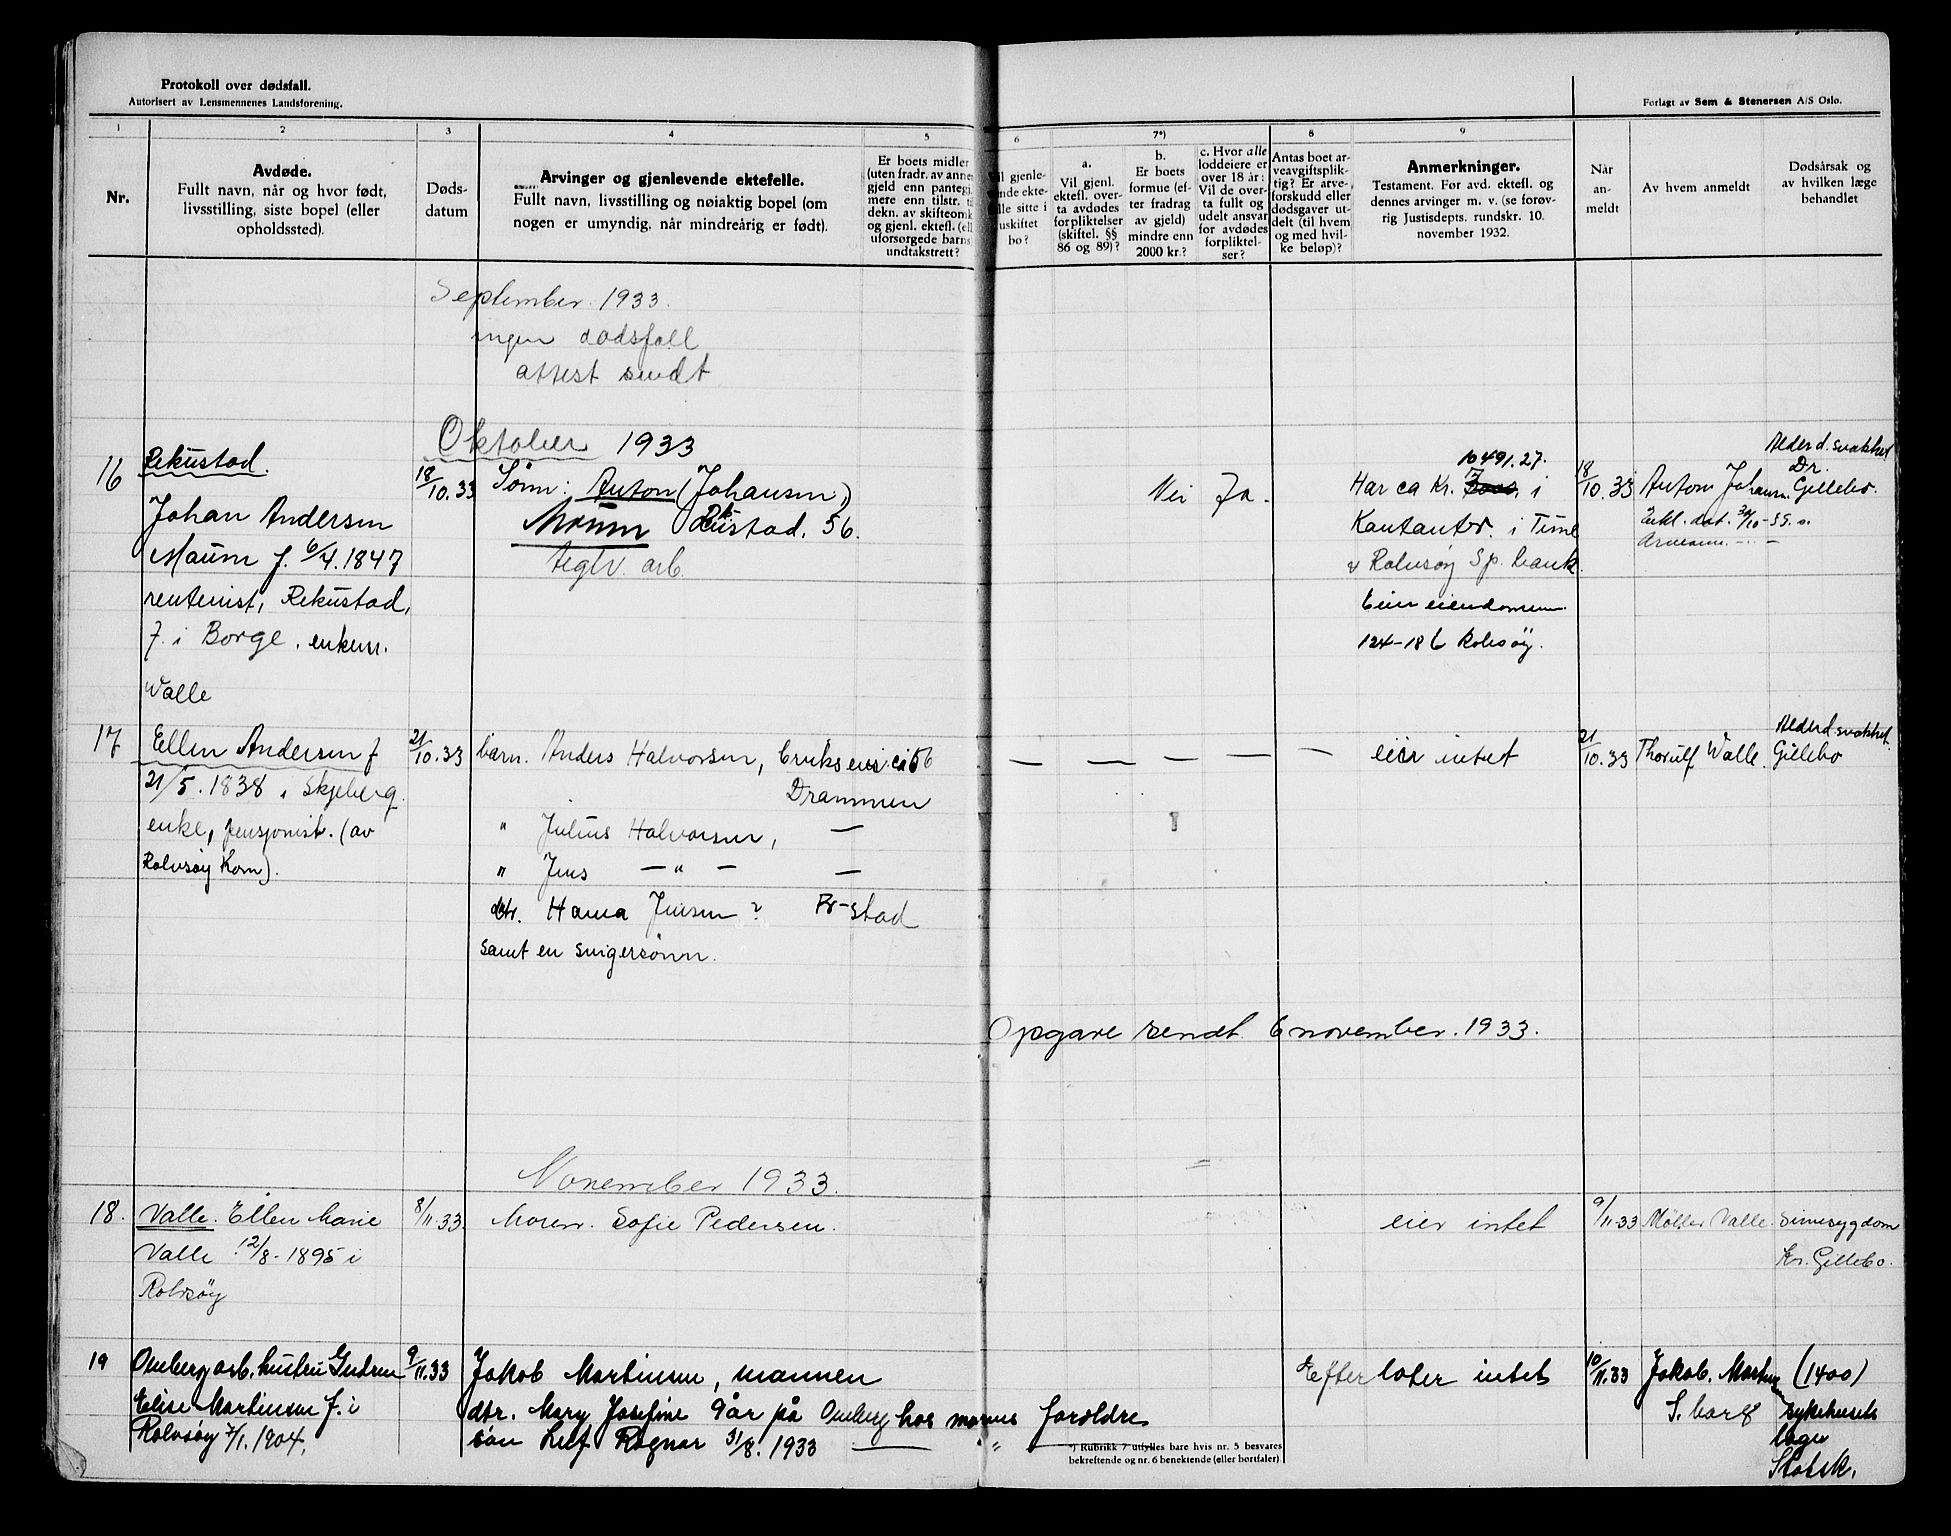 Protokoll over dødsfall.
Autorisert av Lensmennenes Landsforening.
Forlagt av Sem & Stenersen A/S Oslo.
1
2
3
4
5
6
7*)
8
9
Nr.
Avdøde.
Fullt navn, når og hvor født,
livsstilling, siste bopel (eller
opholdssted).
Døds-
datum
Arvinger og gjenlevende ektefelle.
Fullt navn, livsstilling og nøiaktig bopel (om
nogen er umyndig, når mindreårig er født).
Er boets midler
(uten fradr. av annen
gjeld enn pantegj.
mere enn tilstr. ti
dekn. av skifteomk
og gjenl. ektefl. (ell
uforsørgede barns
undtakstrett?
il gjenle-
nde ekte-
lle sitte i
uskiftet
bo?
a.
Vil gjenl.
ektefl. over-
ta avdødes
forpliktelser
(skiftel. §§
86 og 89)?
b.
Er boets
formue (ef-
ter fradrag
av gjeld)
mindre enn
2000 kr.?
c. Hvor alle
loddeiere er
over 18 år:
Vil de over-
ta fullt og
udelt ansvar
for avdødes
forpliktel-
ser?
Antas boet ar-
veavgiftsplik-
tig? Er arve-
forskudd eller
dødsgaver ut-
delt (til hvem
og med hvil-
ke beløp)?
Anmerkninger.
Testament. Før avd. ektefl. og
dennes arvinger m. v. (se forøv-
rig Justisdepts. rundskr. 10.
november 1932.
Når
an-
meldt
Av hvem anmeldt
Dødsårsak og
av hvilken læge
behandlet
September. 1933.
ingen dødsfall
attest sendt
Oktober 1933
16
Rekustad.
Johan Andersen
Maum f. 6/4. 1847
rentenist, Rekustad,
f. i Borge, enkem.
Walle
18/10.33
Sønn: Anton (Johansen)
Moum Rekustad, 56.
teglv. arb.
Nei Ja.
10491.27.
Har ca kr. i
Kontanter. i Tune
v Rolvsøy Sp. bank.
Eier eiendommen
124-186 Rolvsøy.
18/10.33
Anton Johansen.
Alderd. svakhet
Dr.
Gillebo.
17
Ellen Andersen f
21/5. 1838 i Skjeberg.
enke, pensjonist. (av
Rolvsøy Kom).
21/10.33
barn. Anders Halvorsen, Brukseier ca 56
Drammen
" Julius Halvorsen, —
" Jens — " — —
dtr. Hanna Jensen? Fr-stad
samt en svigersønn.
— — — — —
eier intet
21/10.33
Thorulf Walle.
Alderd. svakhet.
Gillebo
Opgave sendt 6 november. 1933.
November 1933.
18.
Valle. Ellen Marie
Valle 12/8- 1895 i
Rolvsøy
8/11.33.
Moren. Sofie Pedersen.
eier intet
9/11-33
Møller Valle.
Sinnsygdom
Gillebo.
19
Omberg arb. hustru Gudrun
Elise Martinsen f. i
Rolvsøy 7/1. 1904.
9/11.33
Jakob Martinsen, mannen
dtr. Mary Josefine 9 år på Omberg hos morens foreldre
søn Leif Ragnar 31/8. 1933 — " —
Efterlater intet
10/11.33
Jakob. Martinsen
S. borg
(1400)
sykehusets
læge
*) Rubrikk 7 utfylles bare hvis nr. 5 besvares
bekreftende og nr. 6 benektende (eller bortfaller).